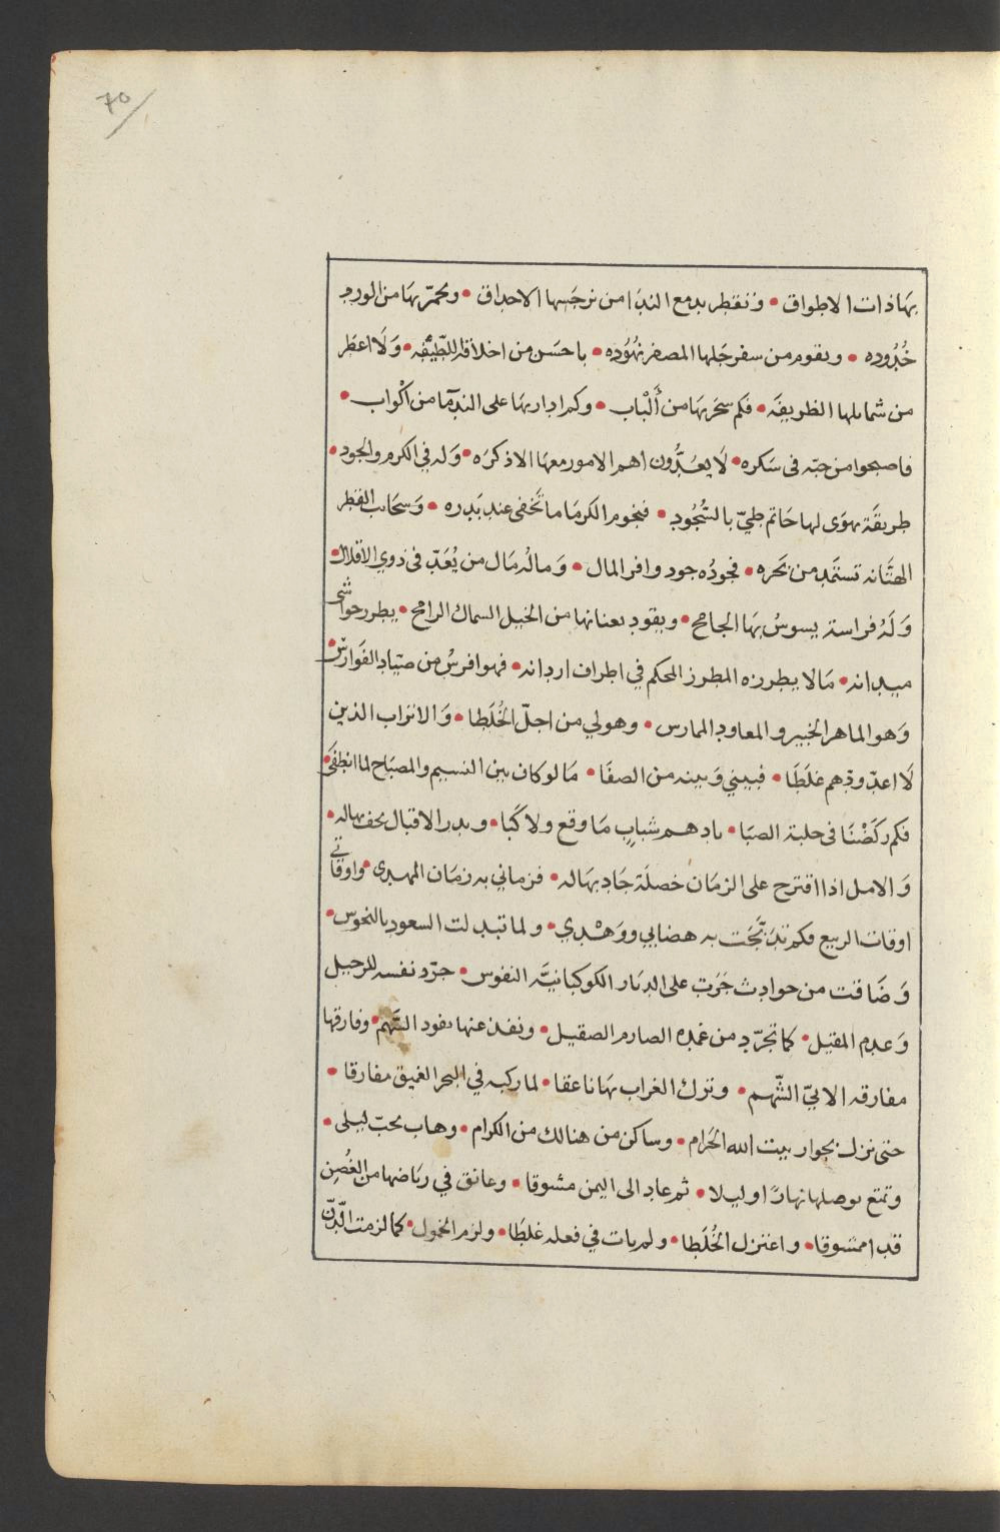 70/
بهَا ذات الاطواق • وَتقطر بدمع الندَا من نرجَسها الاحداق • ويحمّر بهَا من الورد
خُدُوده • ويقوم من سفرجَلها المصفر نهُوُده • باحسَن من اخلاقه اللّطيفه • وَلَا اعطَر
من شمايلها الظريفَه • فكم سحَر بهَا من أَلْباب • وكم ادار بهَا على الندمَآ من اَكْواب •
فاصبحوا من حبّه فى سَكره • لَا يعُدُّون اهم الامور معهَا الا ذكرَه • وَله في الكرم والجود •
طريقَة يهوَى لها حَاتم طيّ بالسُّجُود • فنجوم الكرمَا ما تَخفى عند بَدره • وَسحَايب القطر
الهتَّانه تستمَد من بَحره • فجودُه جود وافر المال • وَمالُه مَال من يُعَدّ فى ذوي الاقلال •
وَلَهُ فراسة يسوسُ بهَا الجامح • ويقود بعنانها من الخيل السماك الرامح • يطرر حواشى
ميدانه • مَا لا يطرزه المطرز المحكم في اطراف اردانه • فهو افرسُ من صَيَّاد الفَوارسْ •
وَهو الماهر الخبير والمعاود الممارس • وهو لي من اجلّ الخُلَطا • وَالاتراب الذين
لَا اعدّ ودّهم غلَطَا • فبيني وَبينه من الصفَا • مَا لو كان بين النسيم والمصبَاح لما انطفَى •
فكم ركَضْنَا فى حلبة الصبَا • بادهم شبابٍ مَا وقع ولا كَبا • وبدر الاقبال يحف بهاله •
وَالامل اذا اقترح على الزمَان خصلَة جَاد بهَا له • فزماني به زمَان المهدى • واوقاتي
اوقات الربيع فكم تدَبَّجَت به هضابي ووَهْدي • ولما تبدلت السعود بالنحوس •
وَضَاقت من حوادث جَرَت على الديَار الكوكبانيَّه النفوس • جرّد نفسه للرحيل
وَعدم المقيل • كما تجرّد من غمده الصارم الصقيل • ونفذ عنها نفود السَّهم • وفارقها
مفارقه الابيّ الشّهم • وترك الغراب بهَا ناعقا • لما ركب في البحر الغميق مفارقا •
حتى نزل بجوار بيت الله الحَرام • وساكن من هنالك من الكرام • وهاب بحبّ ليلى •
وتمتع بوصلها نهارًا وليلا • ثم عاد الى اليمن مشوقا • وعانق في ريَاضها من الغُصن
قدا ممشوقا • واعتزل الخُلَطا • ولم يات في فعله غلطَا • ولزم الخمول • كما لزمت الدّنّ